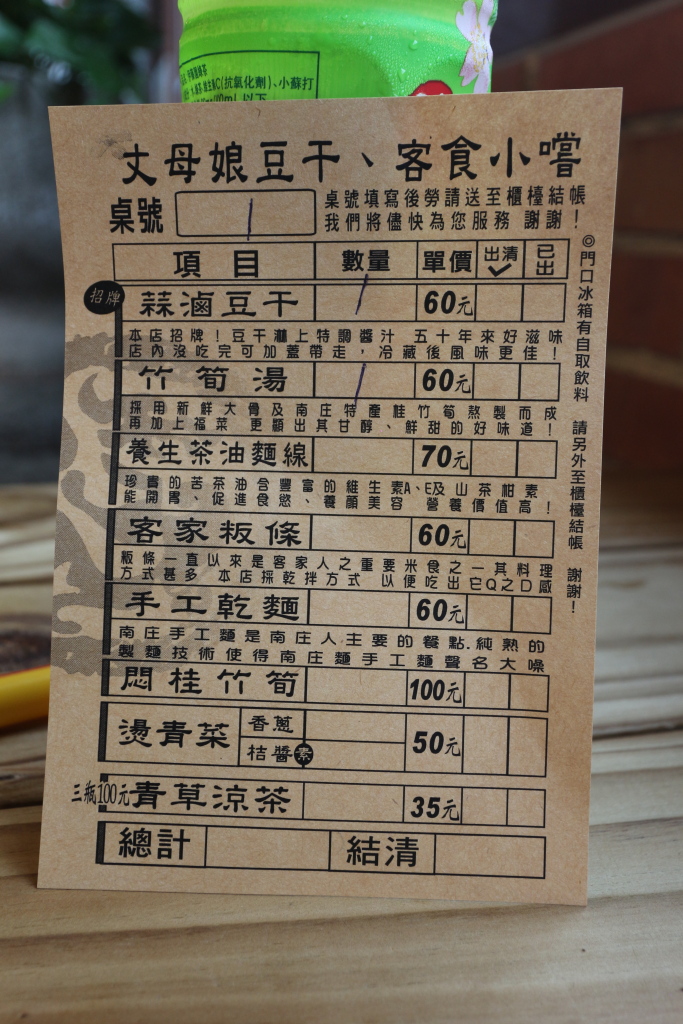 C(抗氧化劑)、小蘇打
以下
丈母娘豆干、客食小嚐
桌號
桌號填寫後勞請送至櫃檯結帳
我們將儘快為您服務 謝謝！
項目 數量 單價 出清 已出
招牌 蒜滷豆干 60元
本店招牌！豆干灑上特調醬汁 五十年來好滋味
店內沒吃完可加蓋帶走，冷藏後風味更佳！
竹筍湯 60元
採用新鮮大骨及南庄特產桂竹筍熬製而成
再加上福菜 更顯出其甘醇、鮮甜的好味道！
養生茶油麵線 70元
珍貴的苦茶油含豐富的維生素A、E及山茶柑素
能開胃、促進食慾、養顏美容 營養價值高！
客家粄條 60元
粄條一直以來是客家人之重要米食之一其料理
方式甚多 本店採乾拌方式 以便吃出它Q之口感
手工乾麵 60元
南庄手工麵是南庄人主要的餐點.純熟的
製麵技術使得南庄麵手工麵聲名大噪
悶桂竹筍 100元
燙青菜 香蔥 50元
桔醬 素
三瓶100元 青草涼茶 35元
總計 結清
◎門口冰箱有自取飲料 請另外至櫃檯結帳 謝謝！